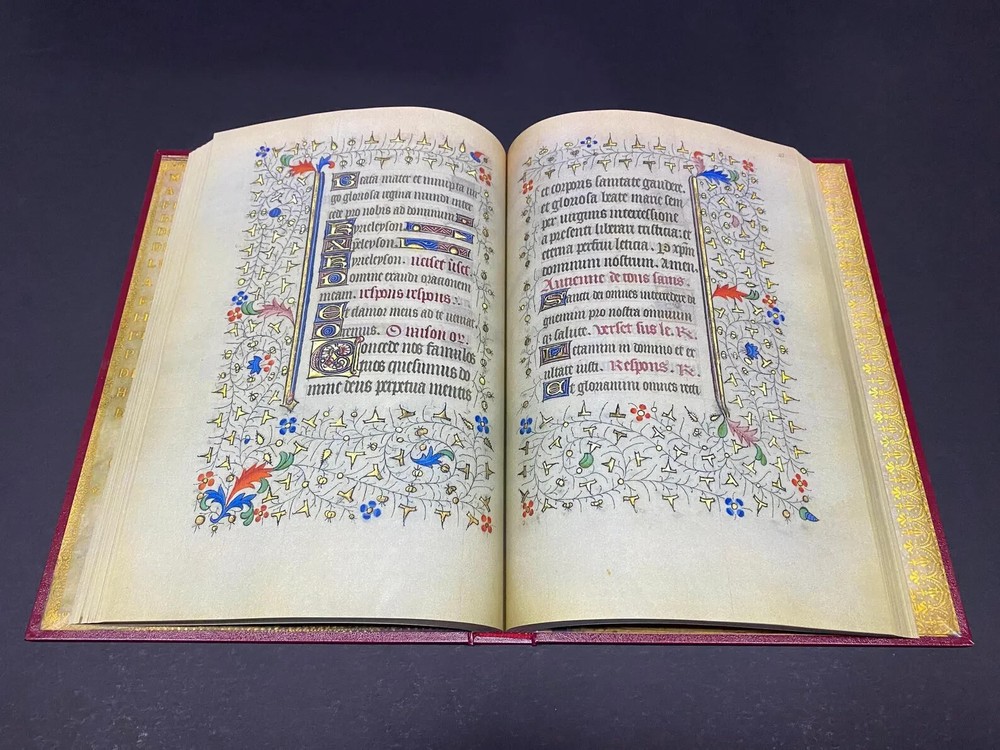 Beata mater et innupta vir
go gloriosa regina mundi inter
cede pro nobis ad dominum
Kyrieleyson.
Xpeleyson.
Kyrieleyson. verset verset.
Domine exaudi oracionem
meam. respons respons.
Et clamor meus ad te veniat
Oremus. Oraison or.
Concede nos famulos
tuos quesumus do
mine deus perpetua mentis
et corporis sanitate gaudere.
et gloriosa beate marie sem
per virginis intercessione
a presenti liberari tristicia. et
eterna perfrui leticia. P xpm
dominum nostrum. amen.
Antienne de tous sains.
Sancti dei omnes intercedere di
gnemini pro nostra omnium
qz salute. verset sus le. R.
Letamini in domino et ex
ultate iusti. Respons. R.
Et gloriamini omnes recti